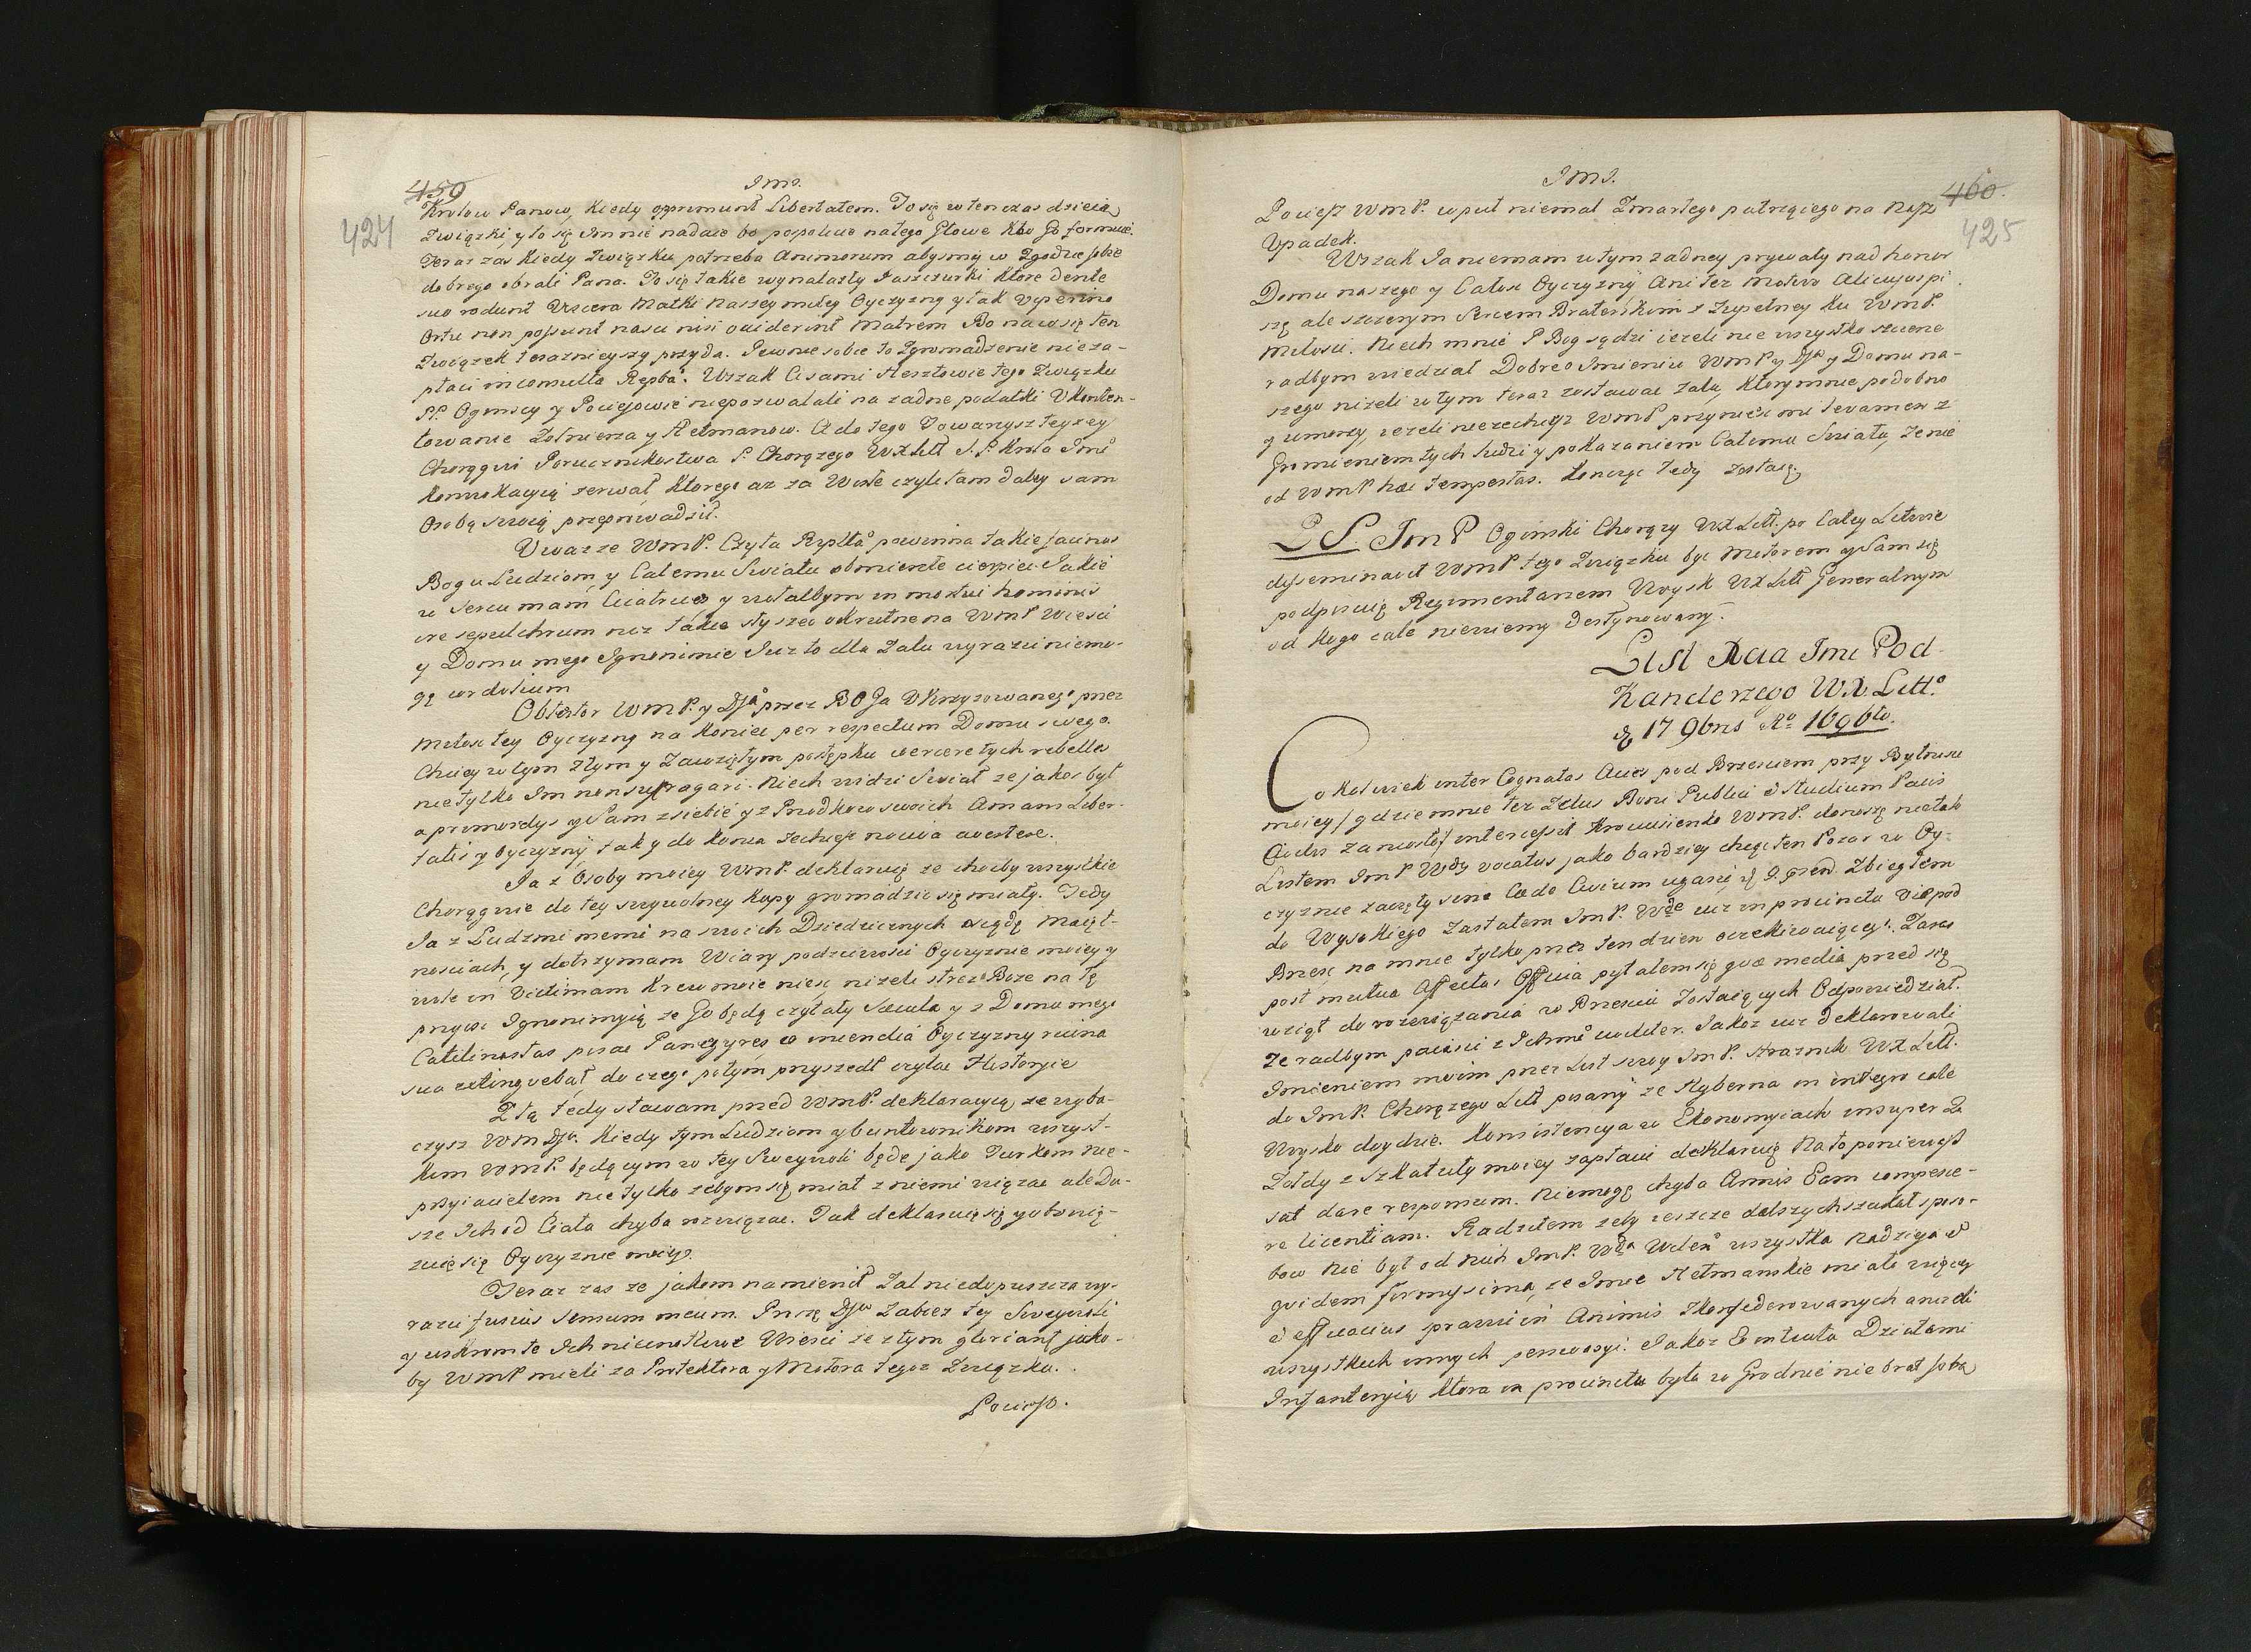 459
424
Jms.
Krolow Panow, kiedy opprimunt Libertatem. To się wtenczas dzieia
Związki, y to się Jm nie nadaie bo pospolicie natego Głowę kto go formuie.
Teraz zas kiedy Związku potrzeba Animorum abysmy w Zgodzie sobie
dobrego obrali Pana. To się takie wynalazły Jaszczurki ktore dente
suo rodunt Viscera Matki Naszey miłey Oyczyzny y tak Viperino
Ortu non possunt nasci nisi occiderint Matrem Bo na co się ten
Związek teraznieyszy przyda. Pewnie sobie to Zgromadzenie nieza-
płaci inconsulta Repba. Wszak Ci sami Hersztowie tego Związku
PP. Oginscy y Pociejowie niepozwalali na zadne podatki Ukonten-
towanie Zołnierza y Hetmanow. A do tego Towarzysz teyzey
Chorągwi Porucznikostwa P. Chorązego WXLitt S. P. Krola Jmci
Konwokacyią zerwał ktorego az za Wisłę czyli tam daley sam
Osobą swoią przeprowadził.
Uwaz ze WmP. Czyta Rzplta powinna takie facinus
Bogu Ludziom y Całemu Swiatu obmierzłe cierpiec Jakie
w sercu mam Cicatrices y wolałbym in mortui hominis
ire sepulchrum niz takie słyszeć okrutne na WmP Wiesci
y Domu mego Ignominie Juz to dla Zalu wyrazic niemo-
gę cordolium
Obtestor WmP. y Dja przez BOGa Ukrzyzowanego przez
Miłosc tey Oyczyzny na koniec per respectum Domu swego
Chciey w tym złym y Zawziętym postępku coercere tych rebelles
nie tylko Jm non suffragari. Niech widzi Swiat ze jakos był
a primordys y Sam z siebie y z Przodkow swoich Amans Liber-
tatis y Oyczyzny tak y do konca zechcesz nociva avertere.
Ja z Osoby moiey WmP. deklaruię ze choćby wszystkie
Chorągwie do tey swywolney kupy gromadzic się miały. Tedy
Ja z Ludzmi memi na swoich Dziedzicznych osiędę Maięt-
nosciach, y dotrzymam Wiary poddziwosci Oyczyznie moiey y
wolę in Victimam Krew moię niesc nizeli strzez Boze na tę
przyisc Ignominyią ze Go będą czytały Sæcula y z Domu mego
Catilinostas pisac Panegyres co incendia Oyczyzny ruina
sua extinguebat, do czego potym przyszedł czytac Historyie
Z tą tedy stawam przed WmP. deklaracyią, ze wyba-
czysz Wm Dju. Kiedy tym Ludziom y buntownikom wszyst-
kim WmP. będącym w tey Sweywoli będę jako Turkom Nie-
przyiacielem nie tylko zebym się miał z niemi wiązac ale Du-
sze Ich od Ciała chyba rozwiązac. Tak deklaruię się y obowią-
zuię się Oyczyznie moiey.
Teraz zas ze jakom namienił Zal niedopuszcza wy-
razic fusius sensum meum. Proszę Dju Zabiez tey Sweywoli
y uskrom te Ich niecnotliwe Wiesci ze z tym gloriant jako-
by WmP mieli za Protektora y Motora tegoz Związku.
Pociesz.
Jms.
460.
425
Pociesz WmP. wpuł niemal Zmarłego patrzącego na Nasz
Upadek.
Wszak Ja niemam w tym zadney prywaty nad honor
Domu naszego y Całosc Oyczyzny Ani tez Motivo Alicujus pi-
szę ale szczerym Sercem Braterskim z Zupełney ku WmP.
Miłosci. Niech mnie P Bog sądzi iezeli nie wszystko szczerze
radbym wiedział Dobreo Imieniu WmP y Dja y Domu na-
szego nizeli w tym teraz zostawac zalu, ktory mnie podobno
y umorzy, iezeli niezechcesz WmP przyniesc mi levamen z
Gromieniem tych ludzi y pokazaniem Całemu Swiatu, ze nie
od WmP hæc tempestas. Koncząc tedy zostaię
PS. JmP Oginski Chorązy WXLitt. po Całey Litwie
disseminavit WmP tego Związku byc Motorem y Sam się
podpisuię Regimentarzem Woysk WXLitt Generalnym
od kogo cale niewiemy Destynowany.
List Xcia Jmci Pod-
Kanclerzego W.X.Litt.
d 17 9bris Ao 1696to.
Cokolwiek inter Cognatas Acies pod Brzesciem przy Bytnosci
moiey / gdzie mnie tez Zelus Boni Publici & Studium Pacis
Civilis zaniosło / intercessit Krociusienko WmP. donoszę nie tak
Listem JmP Wdy vocatus jako bardziey chcąc ten Pozar w Oy-
czyznie zaczęty sine Cæde Civium ugasic d 9. præsen. Zbiegłem
do Wysokiego Zastałem JmP. Wdę iuz in procinctu Vic pod
Brzesc na mnie tylko przez ten dzien oczekiwaiącego. Zaraz
post mutua Affectus Officia pytałem się quæ media przed się
wziął do rozwiązania w Brzesciu Zostaiących Odpowiedział.
Ze radbym paciisci z Ichmci civiliter. Jakoz iuz deklarowali
Imieniem moim przez List swoy JmP. Straznik WXLitt.
do JmP. Chorązego Litt pisany ze Hyberna in integro cale
Woysko doydzie. Konsistencya w Ekonomyiach insuper Za
Zołdy z Szkatuły moiey zapłacic deklaruię Na to poniewaz
sat dare responsum. Niemogę chyba Armis Eam compesce-
re licentiam. Radziłem zeby ieszcze dalszych szukał sposo-
bow Nie był od nich JmP. Wda Wilens wszystka Nadzieia &
quidem firmissima, ze Imie Hetmanskie miało więcey
& efficacius prawic in Animis Zkonfederowanych anizeli
wszystkich innych perswazyi. Jakoz Eo intuitu Działami
Infanteryią ktora in procinctu była w Grodnie nie brał sobą